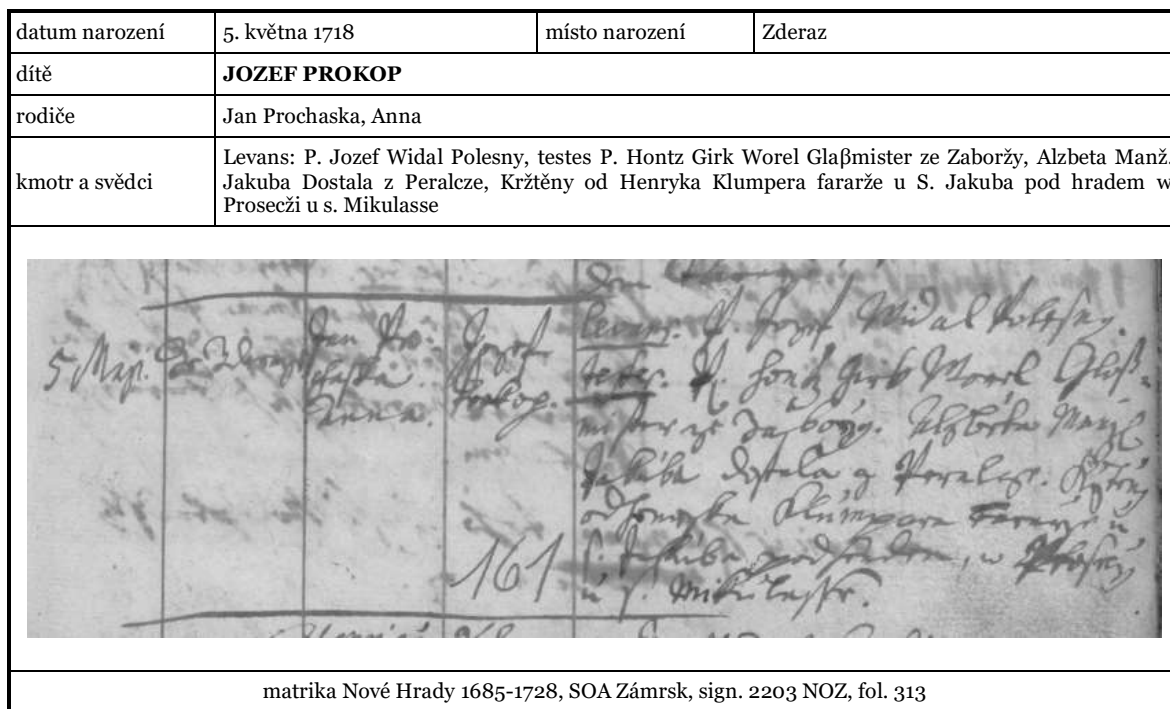 datum narození 5. května 1718 místo narození Zderaz
dítě JOZEF PROKOP
rodiče Jan Prochaska, Anna
kmotr a svědci
Levans: P. Jozef Widal Polesny, testes P. Hontz Girk Worel Glaβmister ze Zaboržy, Alzbeta Manž.
Jakuba Dostala z Peralcze, Kržtěny od Henryka Klumpera fararže u S. Jakuba pod hradem w
Prosecži u s. Mikulasse
levans. P. Jozef Widal Polesny.
5 Maji. Ze Zderaz Jan Pro- Jozef testes. P. Hontz Girk Worel Glaß-
chaska Prokop. mister ze Zaborzy. Alzbeta Manž.
Anna. Jakuba Dostala z Peralcze. Krzteny
od Henryka Klumpera Fararze u
161 S. Jakuba pod hradem, w Proseczi
u s. Mikulasse.
matrika Nové Hrady 1685-1728, SOA Zámrsk, sign. 2203 NOZ, fol. 313